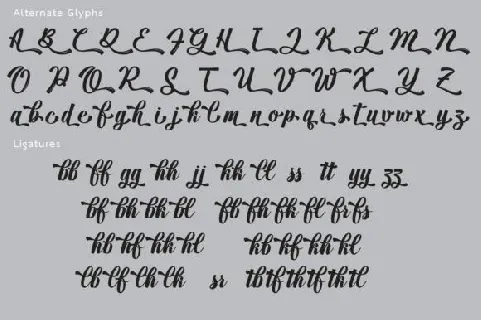 Alternate Glyphs
A B C D E F G H I J K L M N
O P Q R S T U V W X Y Z
a b c d e f g h i j k l m n o p q r s t u v w x y z
Ligatures
bb ff gg hh jj kk ll ss tt yy zz
bf bh bk bl fb fh fk fl fr fs
hb hf hk hl kb kf kh kl
lb lf lh lk sr tb tf th tf tk tl